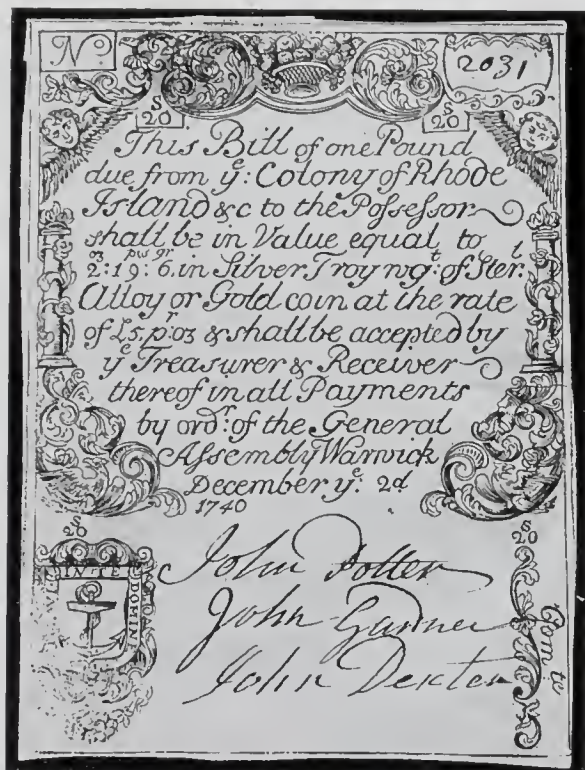 Nº.
2031
S
20
S
20
This Bill of one Pound
due from yᵉ: Colony of Rhode
Island &c to the Possessor
shall be in Value equal to
2:ᵒᶻ 19:ᵖʷᵗ 6.ᵍʳ in Silver Troy wgᵗ: of Sterˡ:
Alloy or Gold coin at the rate
of £5. pʳ: oz & shall be accepted by
yᵉ Treasurer & Receiver
thereof in all Payments
by ordʳ: of the General
Assembly Warwick
December yᵉ: 2d
1740
S
20
S
20
IN TE
DOMINE
John Potter
John Gardner
John Dexter
Com te